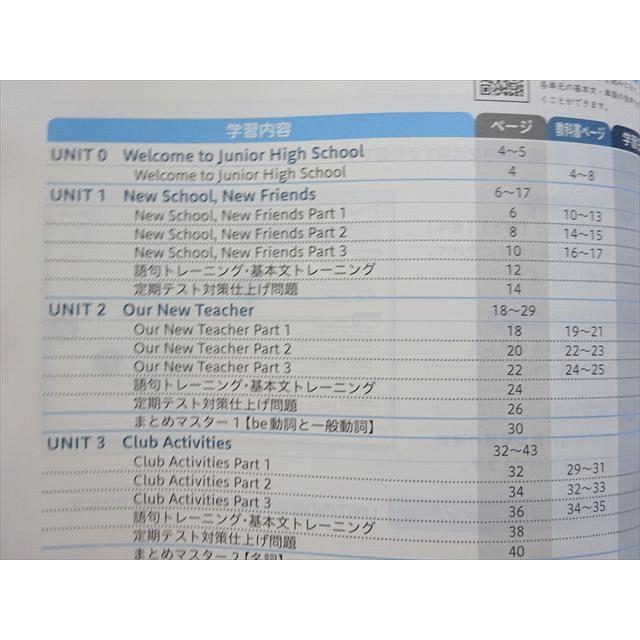 各単元の基本文・単語の音声を
くことができます。
学習内容 ページ 教科書ページ 学習
UNIT 0 Welcome to Junior High School 4～5
Welcome to Junior High School 4 4～8
UNIT 1 New School, New Friends 6～17
New School, New Friends Part 1 6 10～13
New School, New Friends Part 2 8 14～15
New School, New Friends Part 3 10 16～17
語句トレーニング・基本文トレーニング 12
定期テスト対策仕上げ問題 14
UNIT 2 Our New Teacher 18～29
Our New Teacher Part 1 18 19～21
Our New Teacher Part 2 20 22～23
Our New Teacher Part 3 22 24～25
語句トレーニング・基本文トレーニング 24
定期テスト対策仕上げ問題 26
まとめマスター1【be動詞と一般動詞】 30
UNIT 3 Club Activities 32～43
Club Activities Part 1 32 29～31
Club Activities Part 2 34 32～33
Club Activities Part 3 36 34～35
語句トレーニング・基本文トレーニング 38
定期テスト対策仕上げ問題 40
まとめマスター2【名詞】